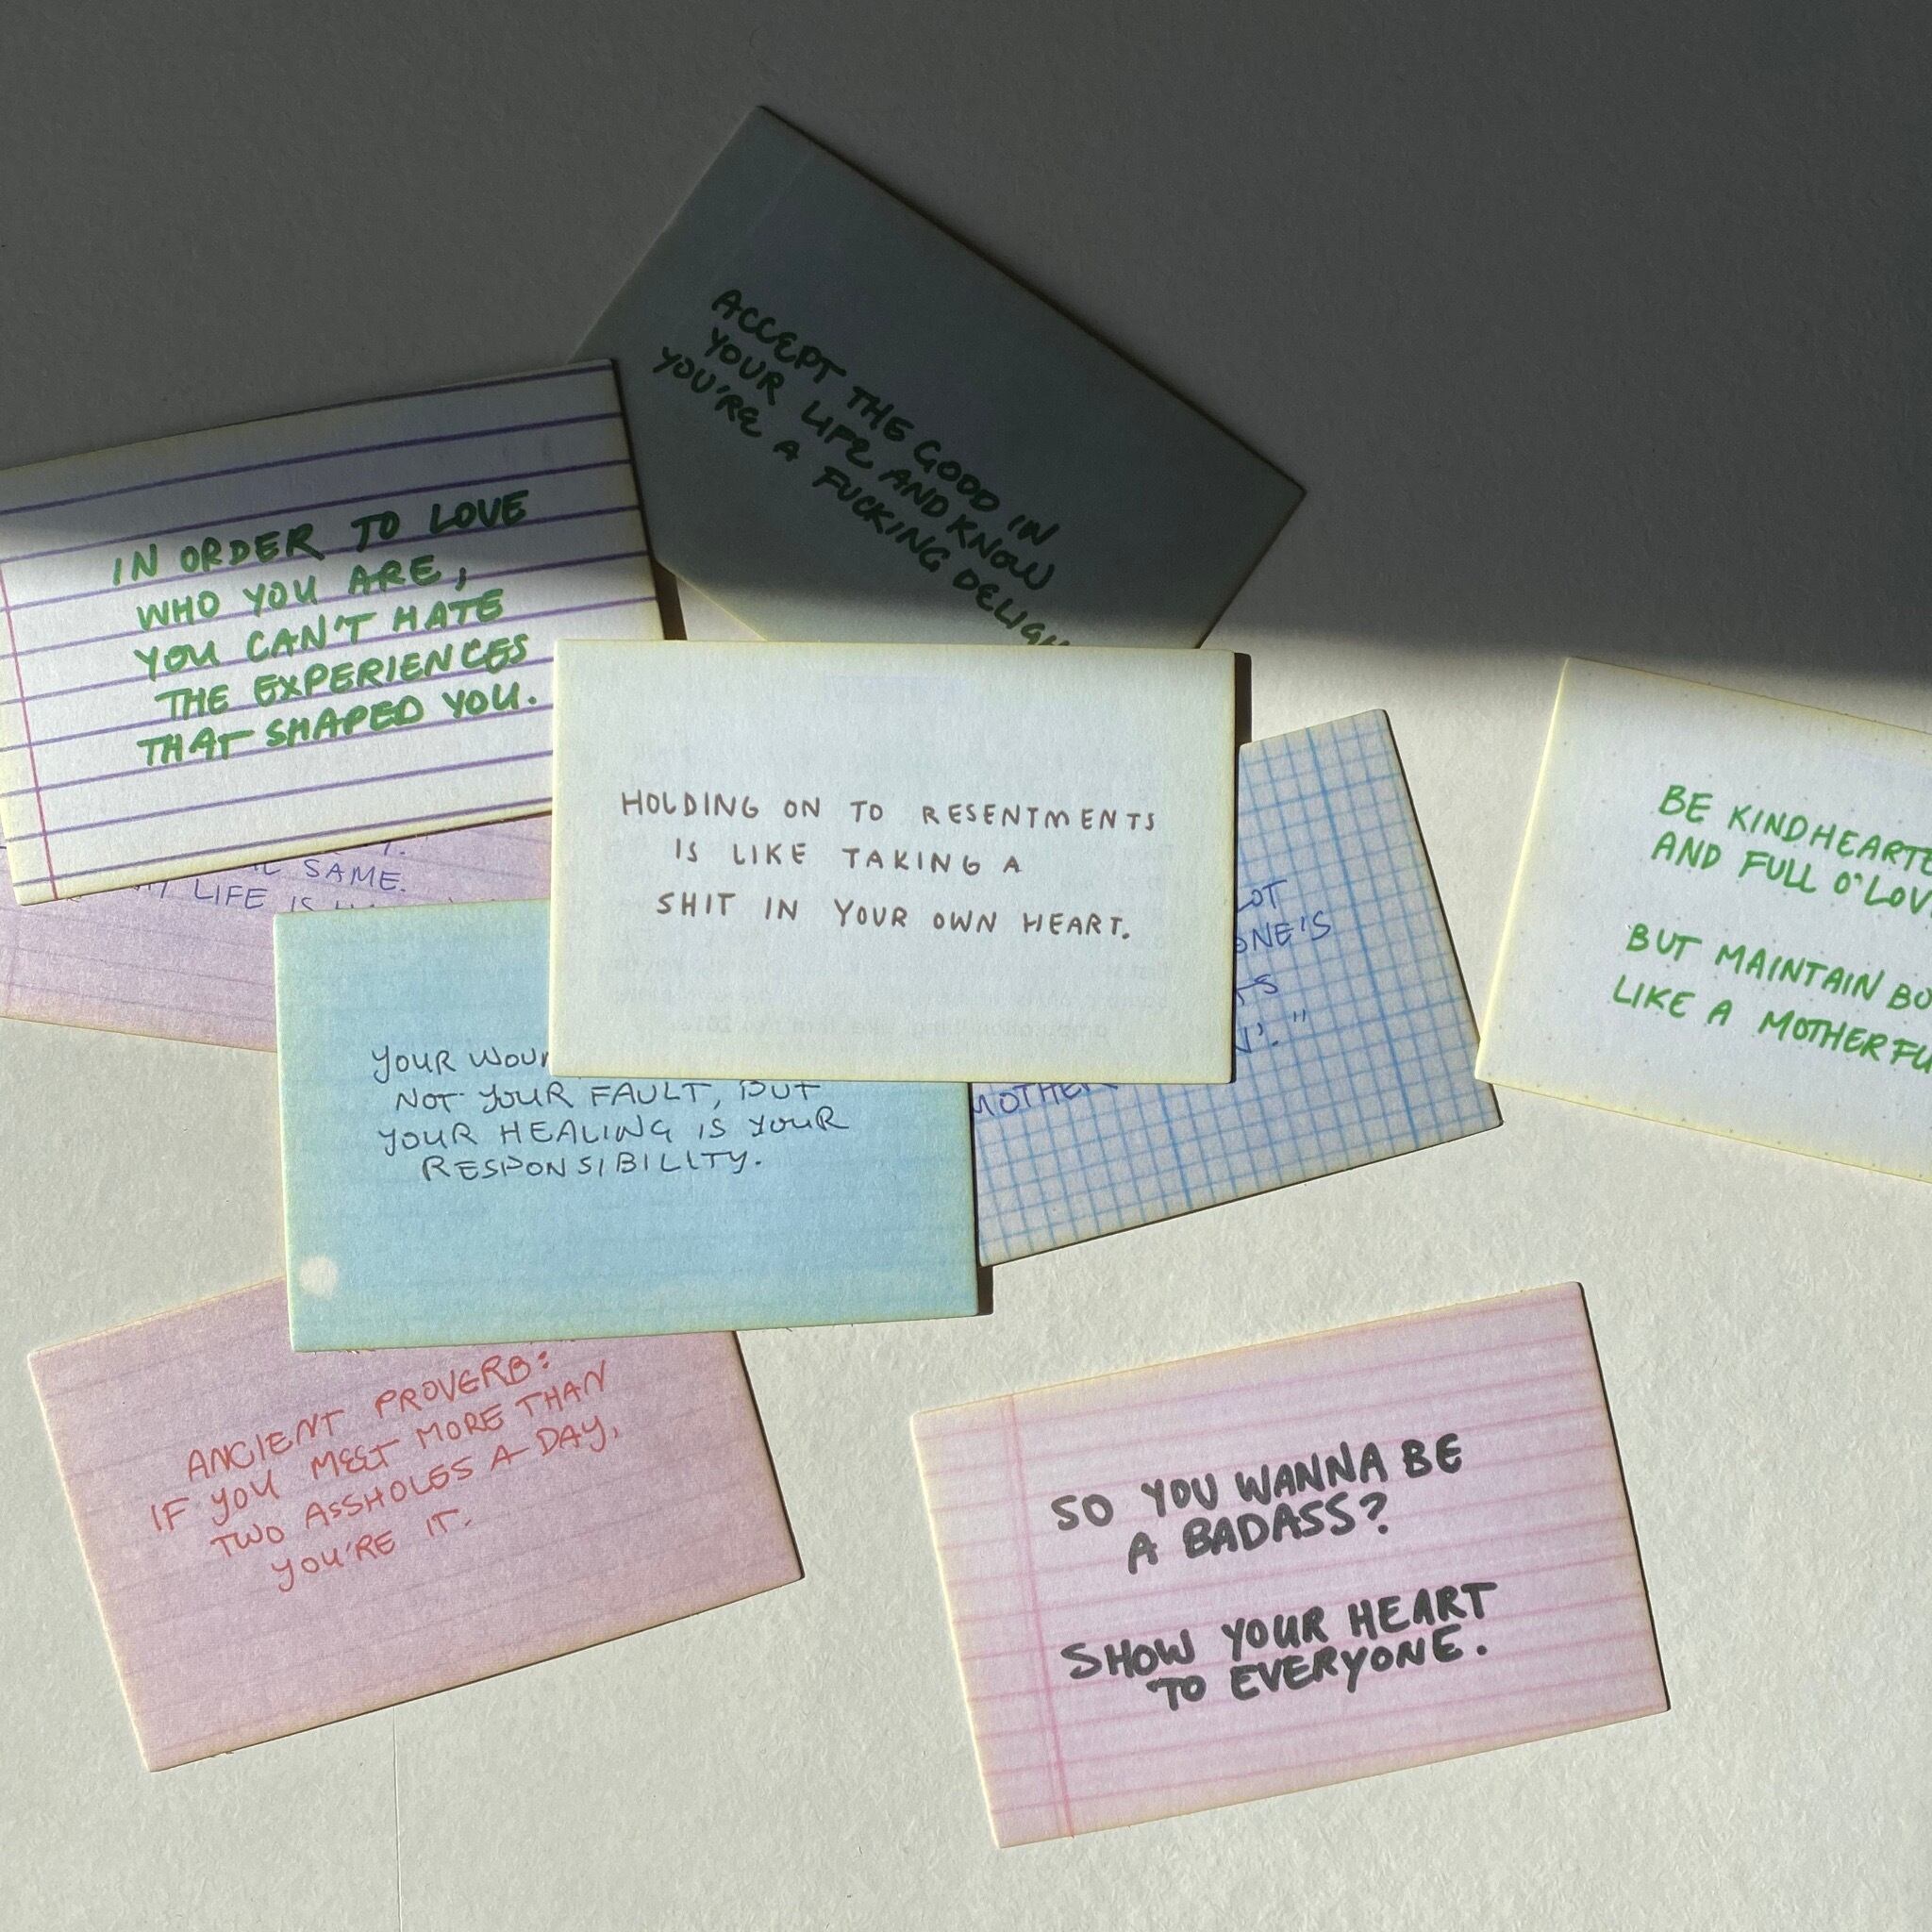 ACCEPT THE GOOD IN
YOUR LIFE AND KNOW
YOU'RE A FUCKING
IN ORDER TO LOVE
WHO YOU ARE,
YOU CAN'T HATE
THE EXPERIENCES
THAT SHAPED YOU.
HOLDING ON TO RESENTMENTS
IS LIKE TAKING A
SHIT IN YOUR OWN HEART.
BE
AND FULL O'
BUT MAINTAIN
LIKE A
SAME.
LIFE IS
YOUR
NOT YOUR FAULT, BUT
YOUR HEALING IS YOUR
RESPONSIBILITY.
ANCIENT PROVERB:
IF YOU MEET MORE THAN
TWO ASSHOLES A DAY,
YOU'RE IT.
SO YOU WANNA BE
A BADASS?
SHOW YOUR HEART
TO EVERYONE.